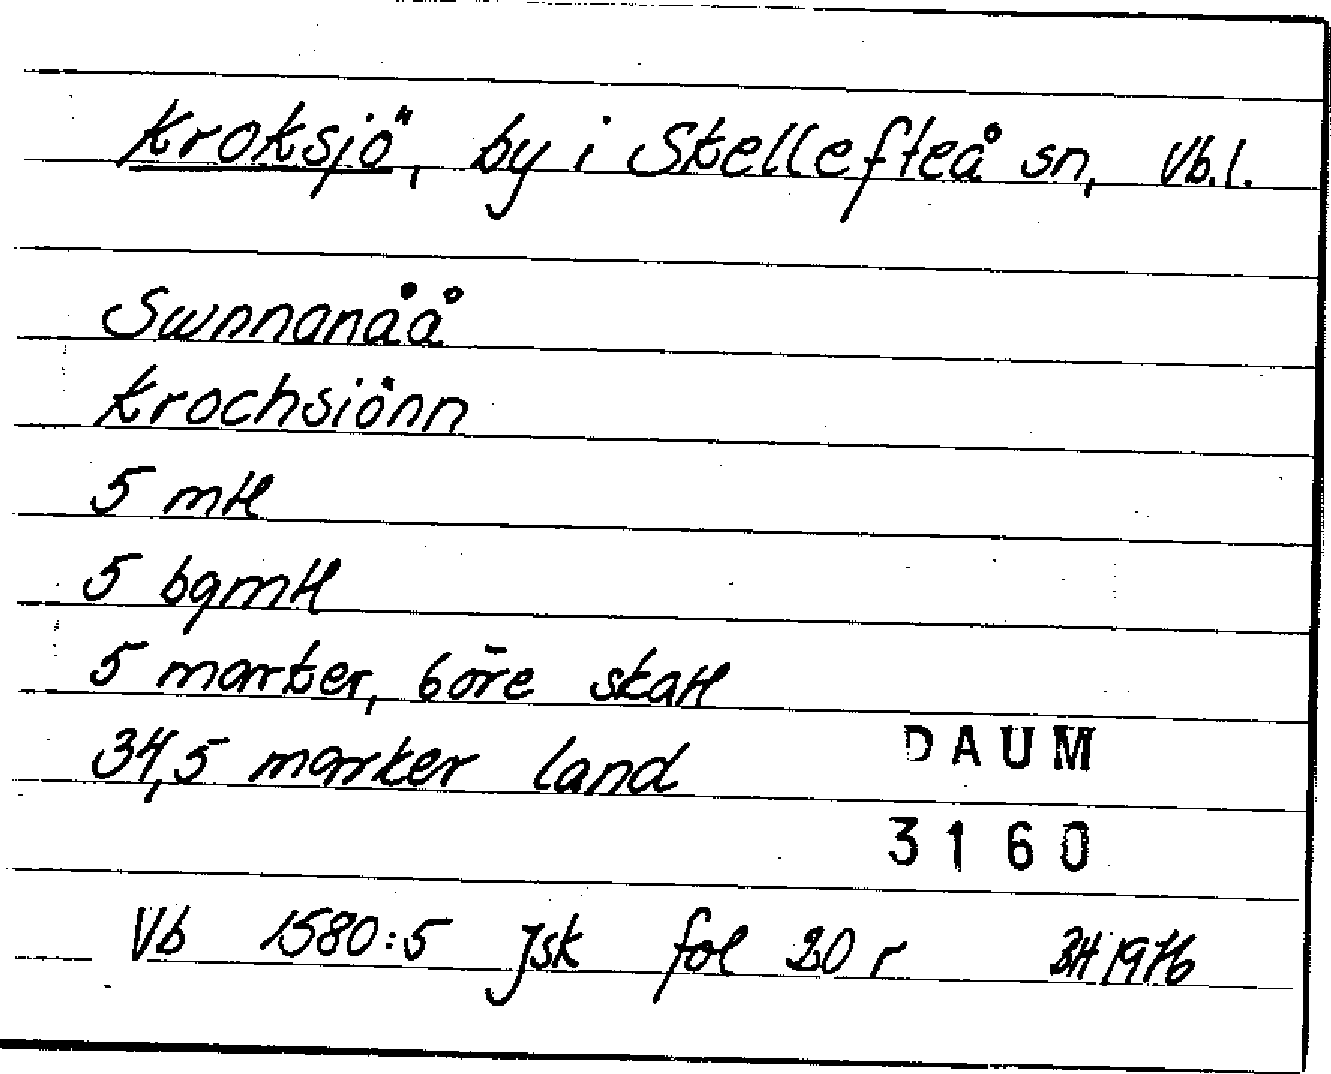 Kroksjö, by i Skellefteå sn, Vb.l.
Swnnanåå
Krochsiönn
5 mtl
5 bgmtl
5 marker, 6 öre skatt
34,5 marker land
DAUM
3160
Vb 1580:5 Jsk fol 20 r